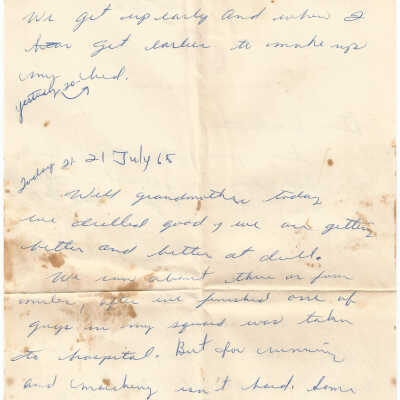 We get up early and when I
have get earlier to make up
my bed.
yesterday 20
Today 21 21 July 65
Well grandmother today
we drilled good, we are getting
better and better at drill.
We run about three or four
miles, after we finished one of
guys in my squad was taken
to hospital. But for running
and marching isn't hard. Some